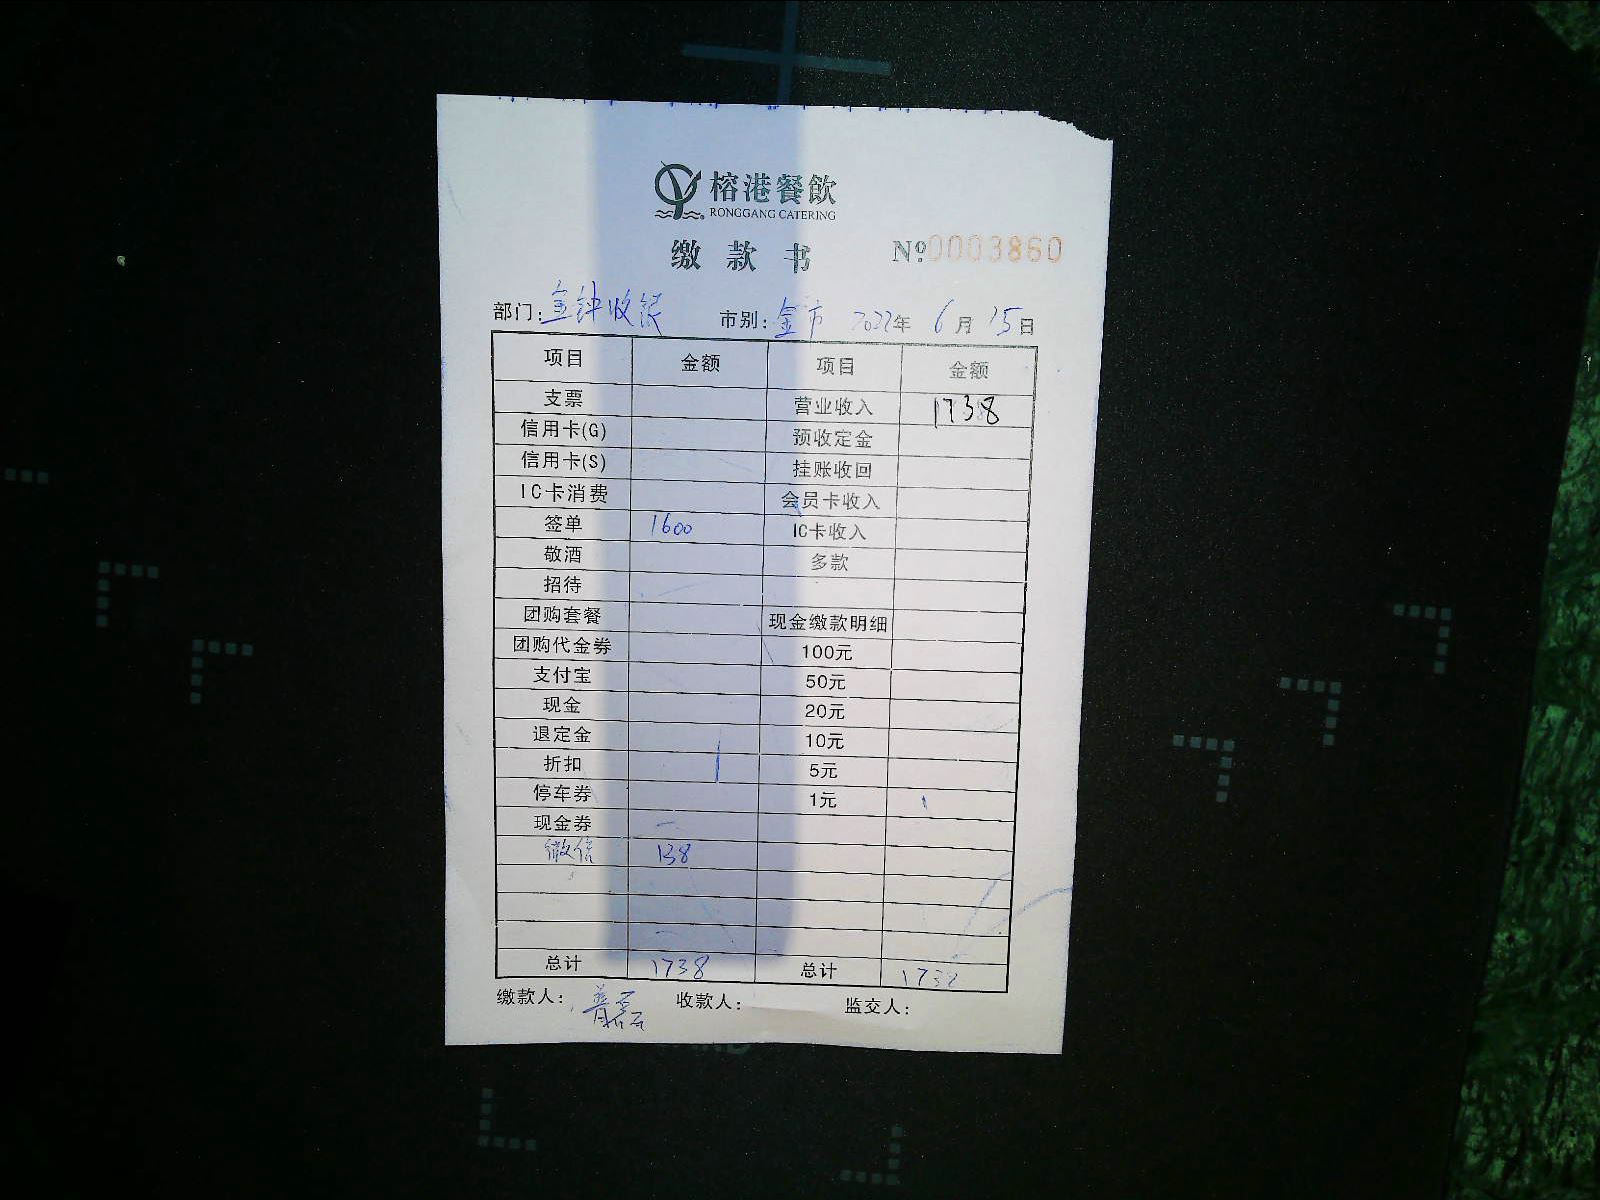 榕港餐飲
RONGGANG CATERING
缴款书 Nº:0003860
部门:金钟收银 市别:全市 2022年6月15日
项目 金额 项目 金额
支票 营业收入 1738
信用卡(G) 预收定金
信用卡(S) 挂账收回
IC卡消费 会员卡收入
签单 1600 IC卡收入
敬酒 多款
招待
团购套餐 现金缴款明细
团购代金券 100元
支付宝 50元
现金 20元
退定金 10元
折扣 5元
停车券 1元
现金券
微信 138
总计 1738 总计 1738
缴款人: 收款人: 监交人: